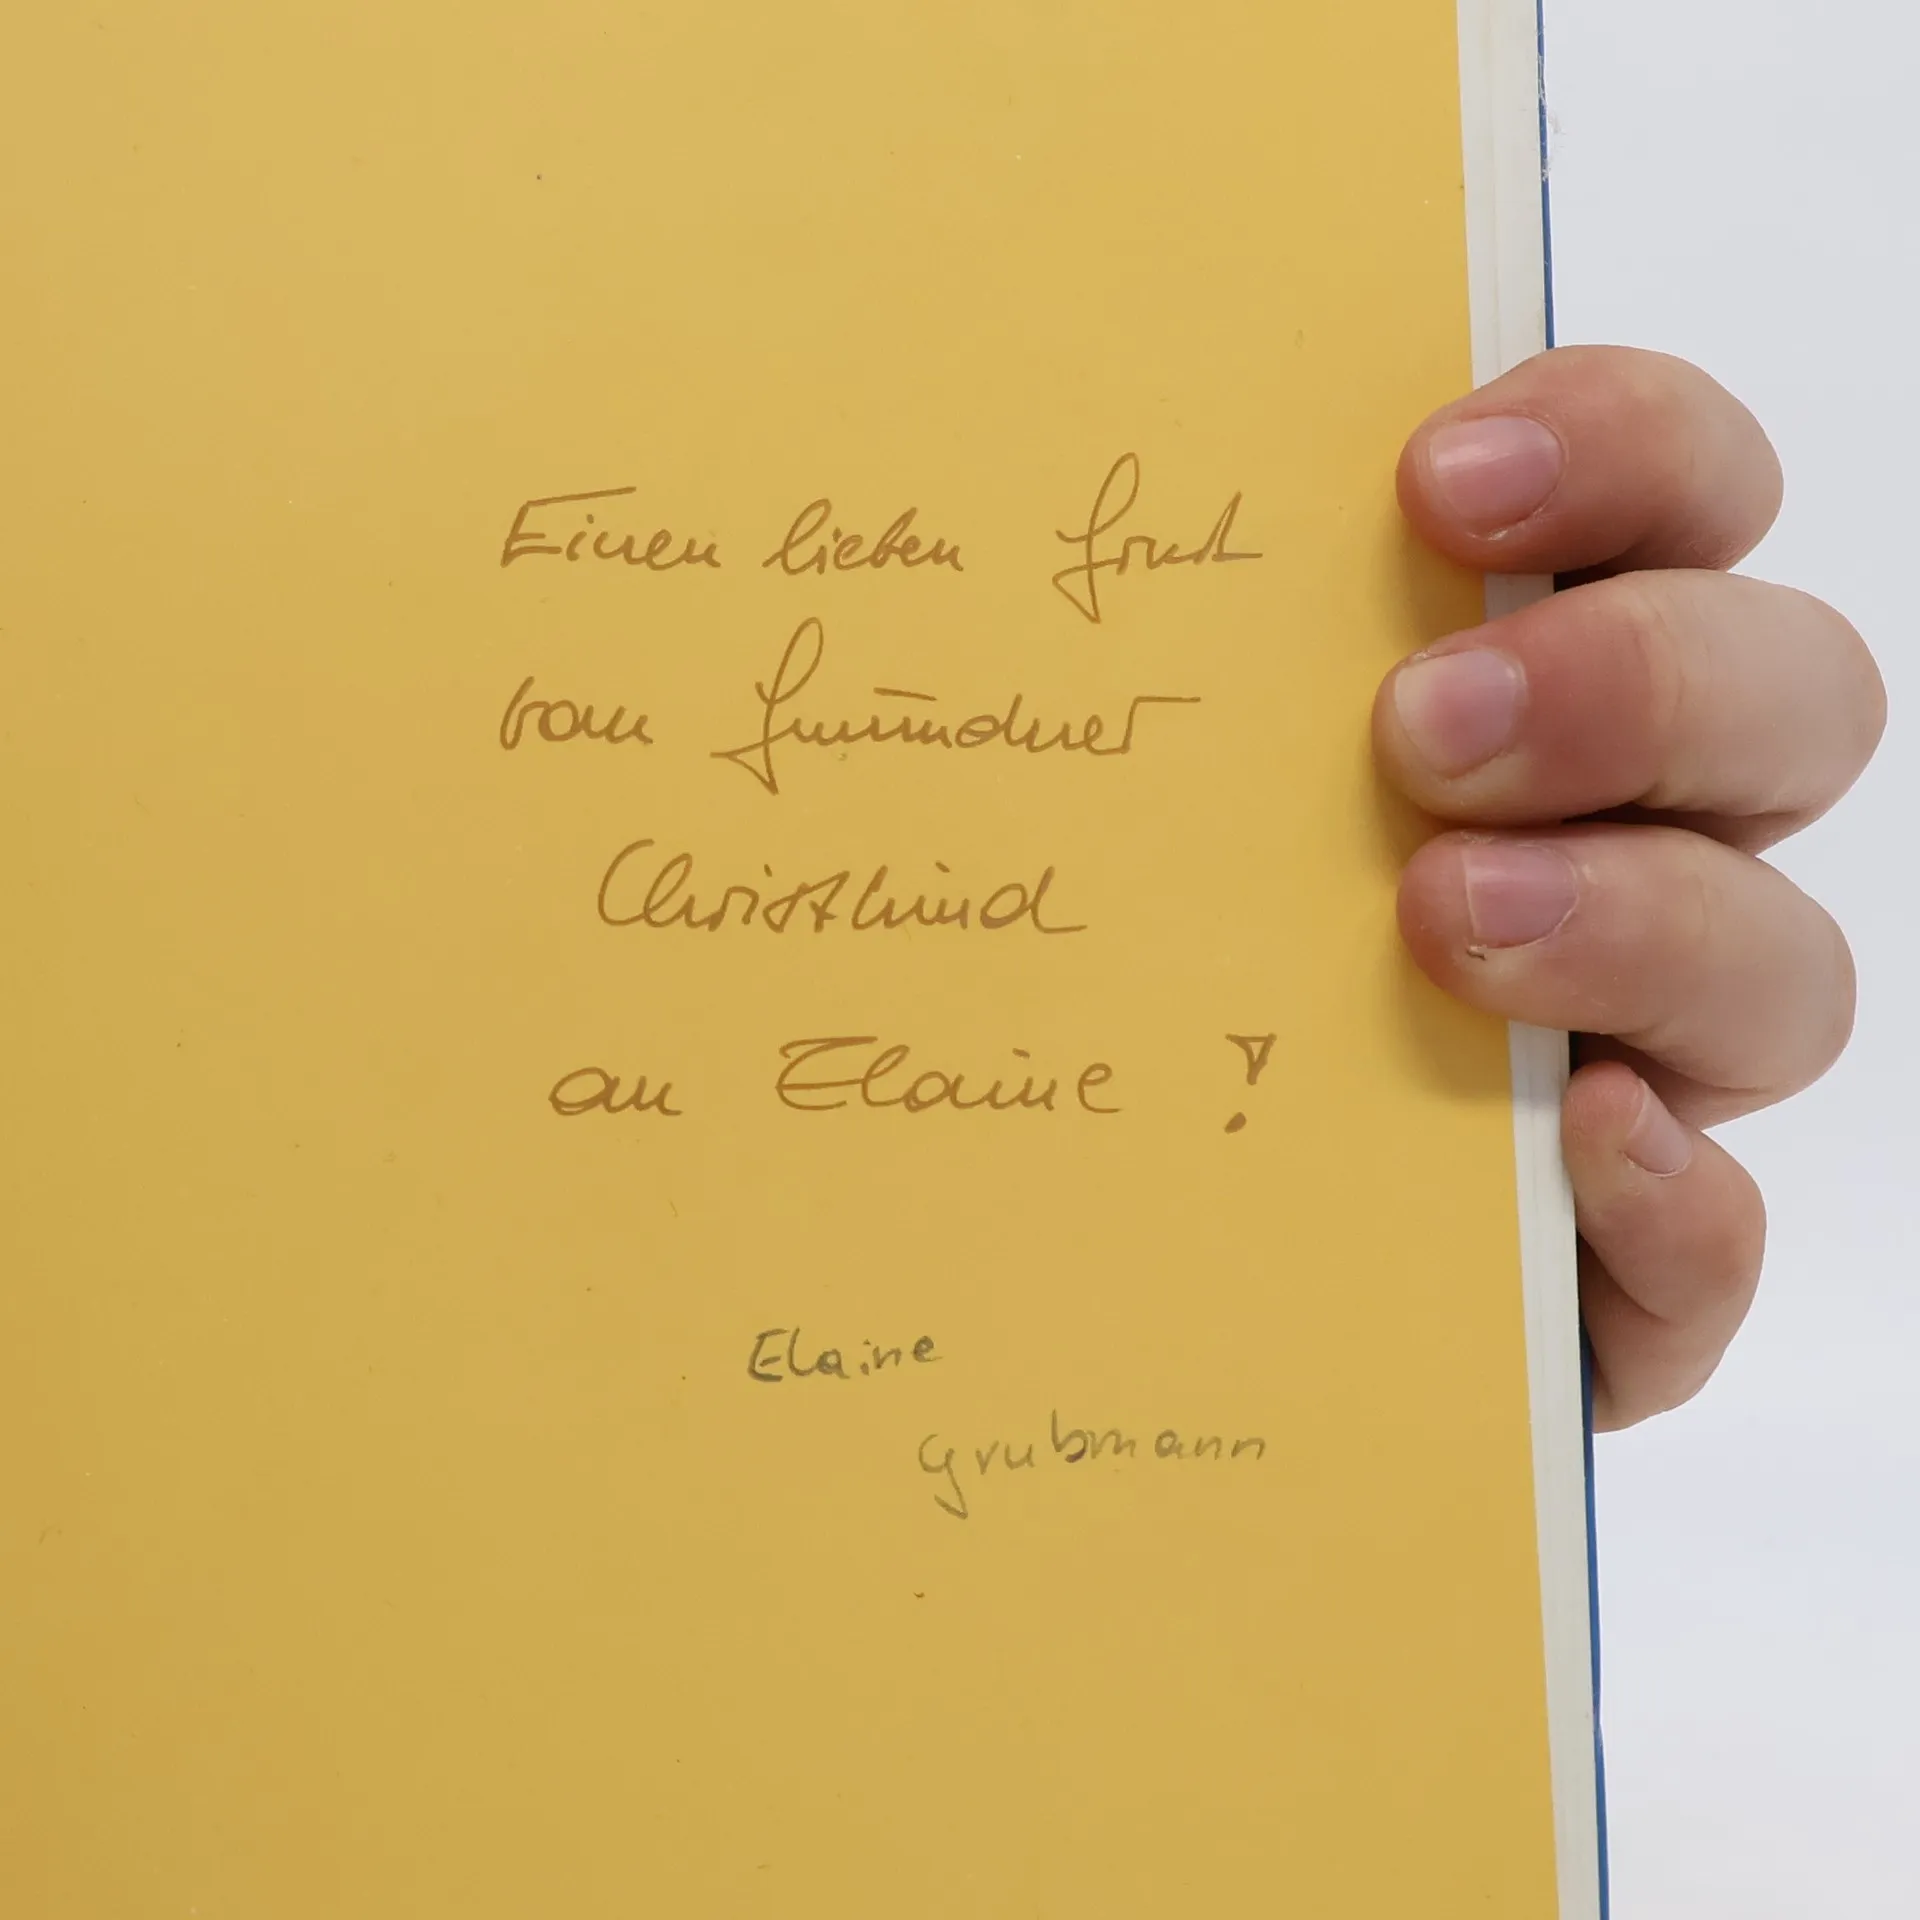 Einen lieben Gruß
vom Gmündner
Christkind
an Elaine!
Elaine
Grubmann